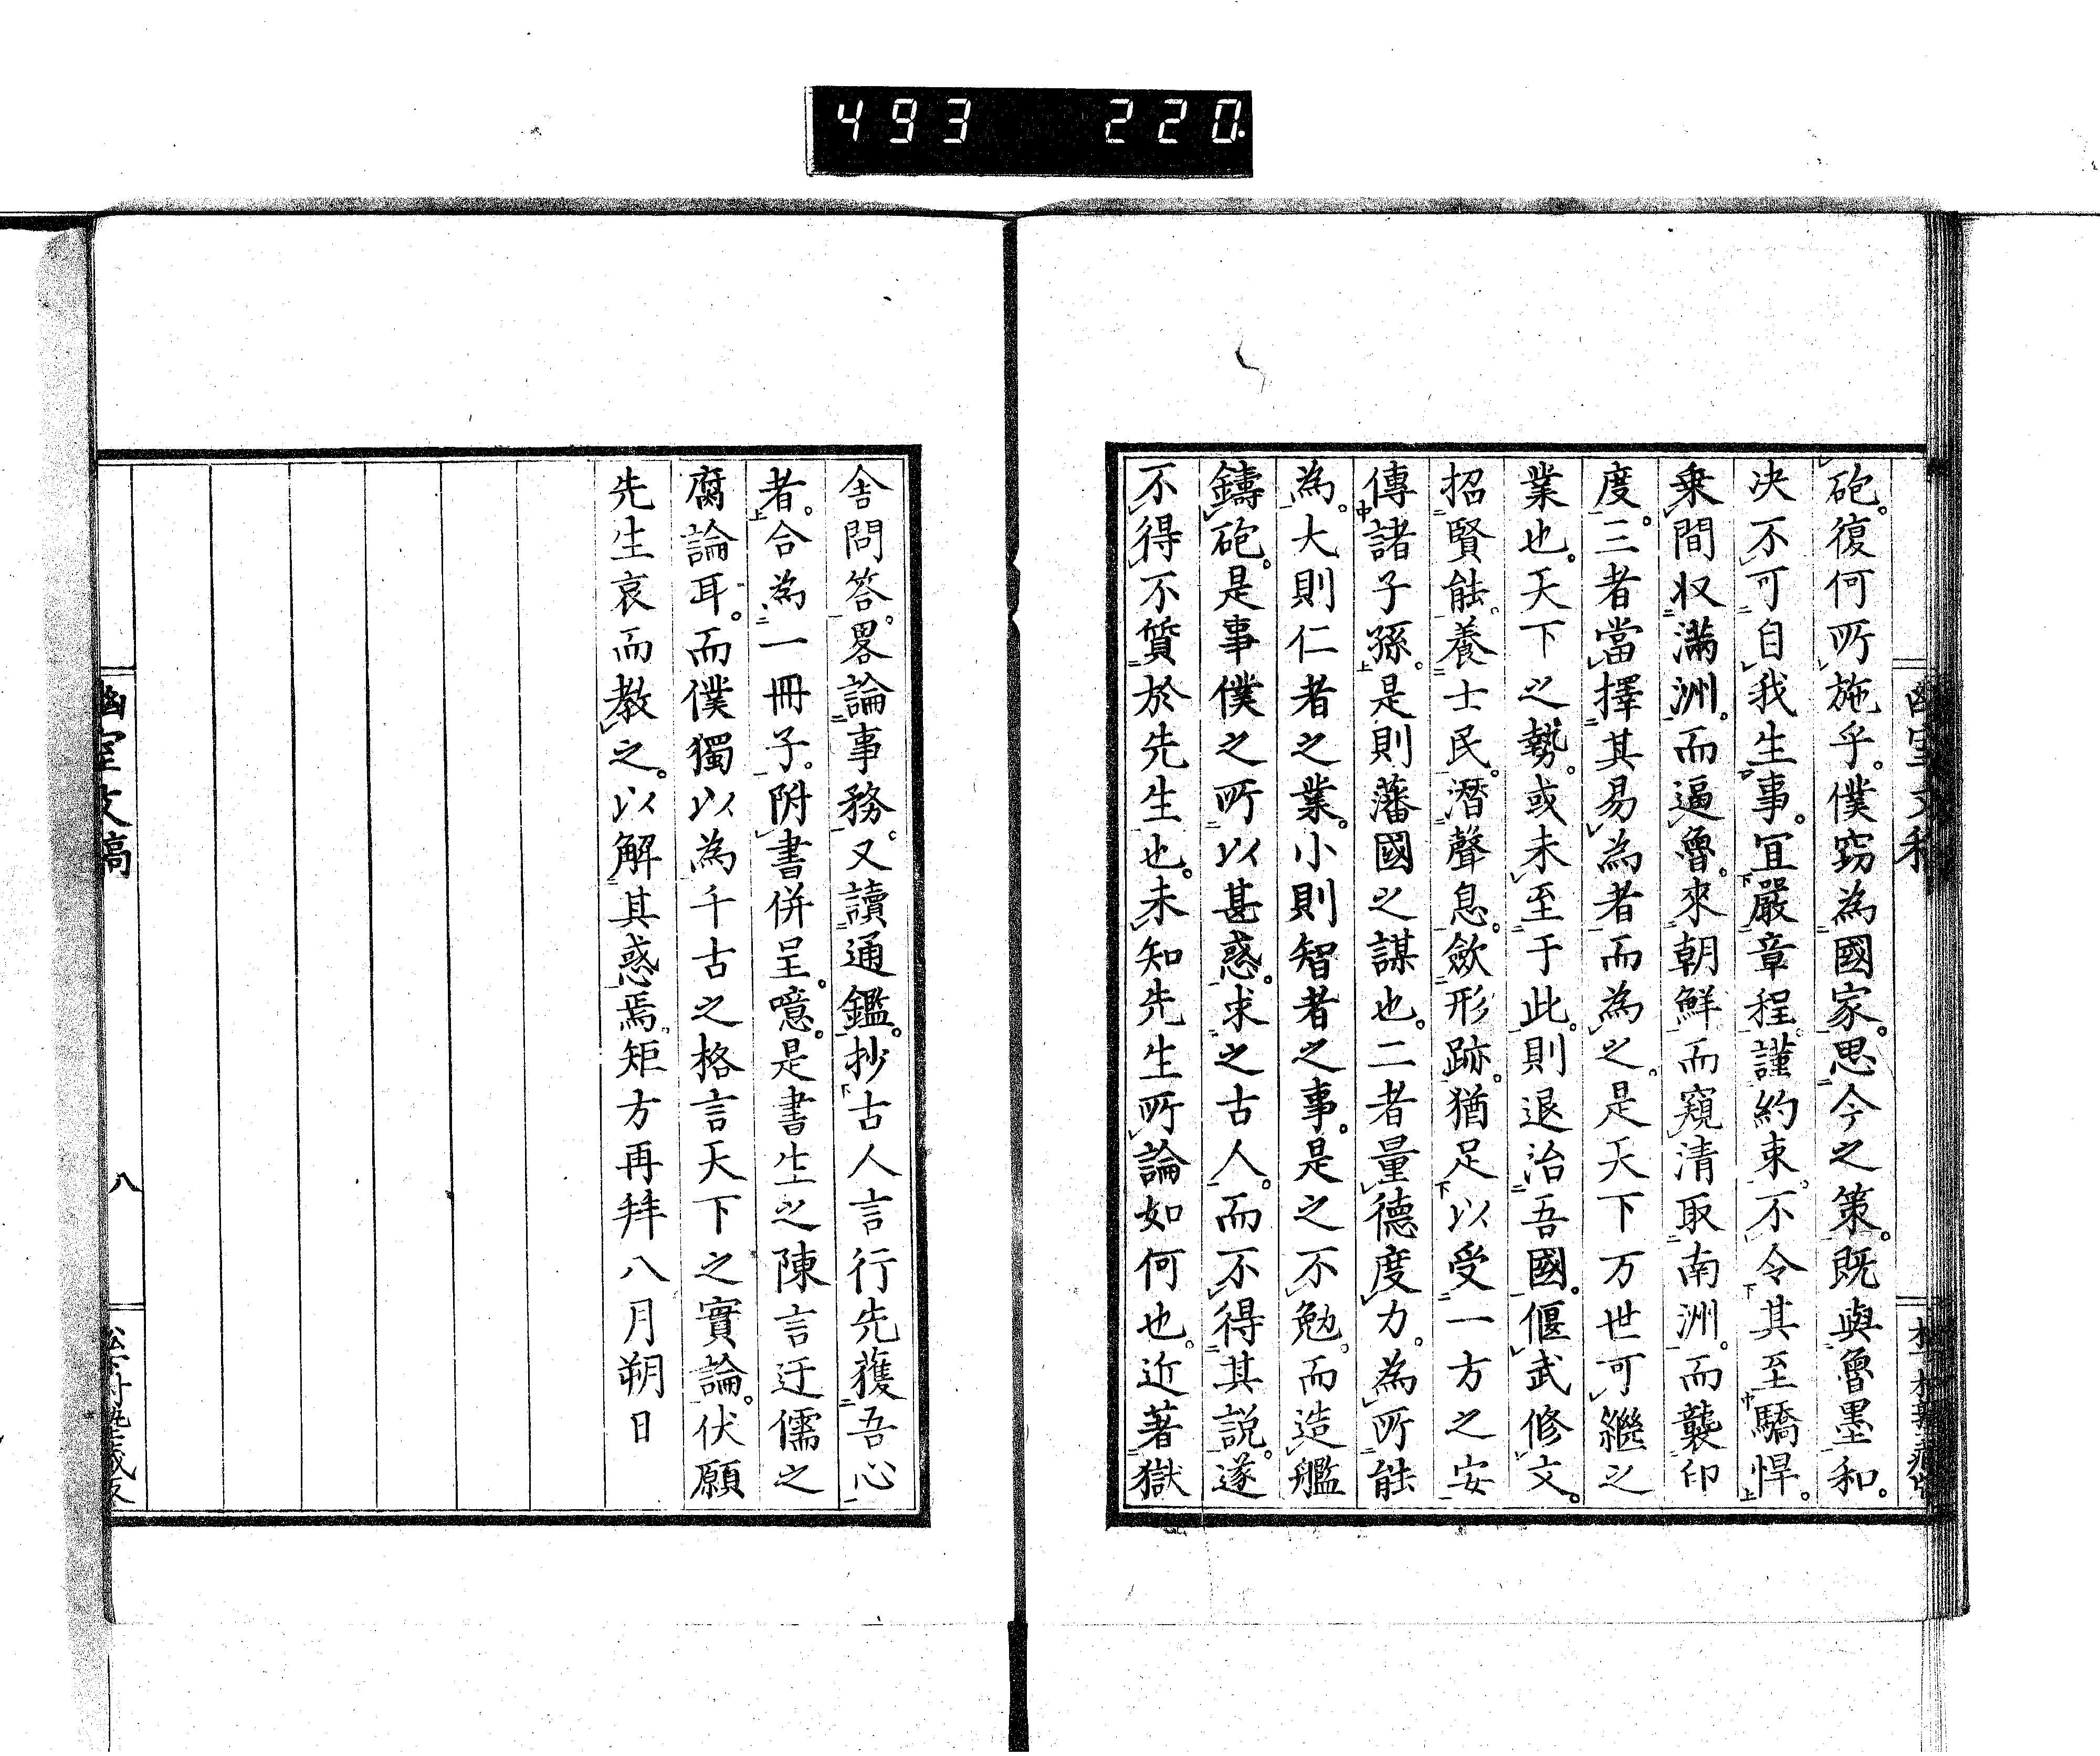 493 220
砲。復何所施乎。僕窃為國家。思今之策。既與魯墨和。
决不可自我生事。宜嚴章程。謹約束。不令其至驕悍。
乗間収滿洲。而逼魯。來朝鮮而窺清取南洲。而襲印
度。三者當擇其易為者而為之。是天下万世可繼之
業也。天下之勢。或未至于此。則退治吾國。偃武修文。
招賢能。養士民。潛聲息。斂形跡。猶足以受一方之安
傳諸子孫。是則藩國之謀也。二者量德度力。為所能
為。大則仁者之業。小則智者之事。是之不勉。而造艦
鑄砲。是事僕之所以甚惑。求之古人。而不得其説。遂
不得不質於先生也。未知先生所論如何也。近著獄
舎問答。畧論事務。又讀通鑑。抄古人言行先獲吾心
者。合為一冊子。附書併呈。噫。是書生之陳言迂儒之
腐論耳。而僕獨以為千古之格言天下之實論。伏願
先生哀而教之。以解其惑焉。矩方再拜八月朔日
幽室文稿
八
松下村塾藏版